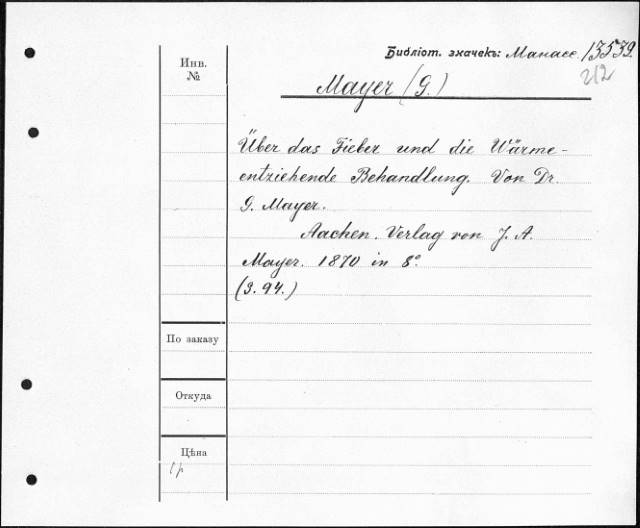 Библіот. значекъ: Манасс. 13539.
212
Инв.
№
Mayer (G.)
Über das Fieber und die Wärme-
entziehende Behandlung. Von Dr.
G. Mayer.
Aachen. Verlag von J. A.
Mayer. 1870 in 8°.
(S. 94.)
По заказу
Откуда
Цѣна
1 р